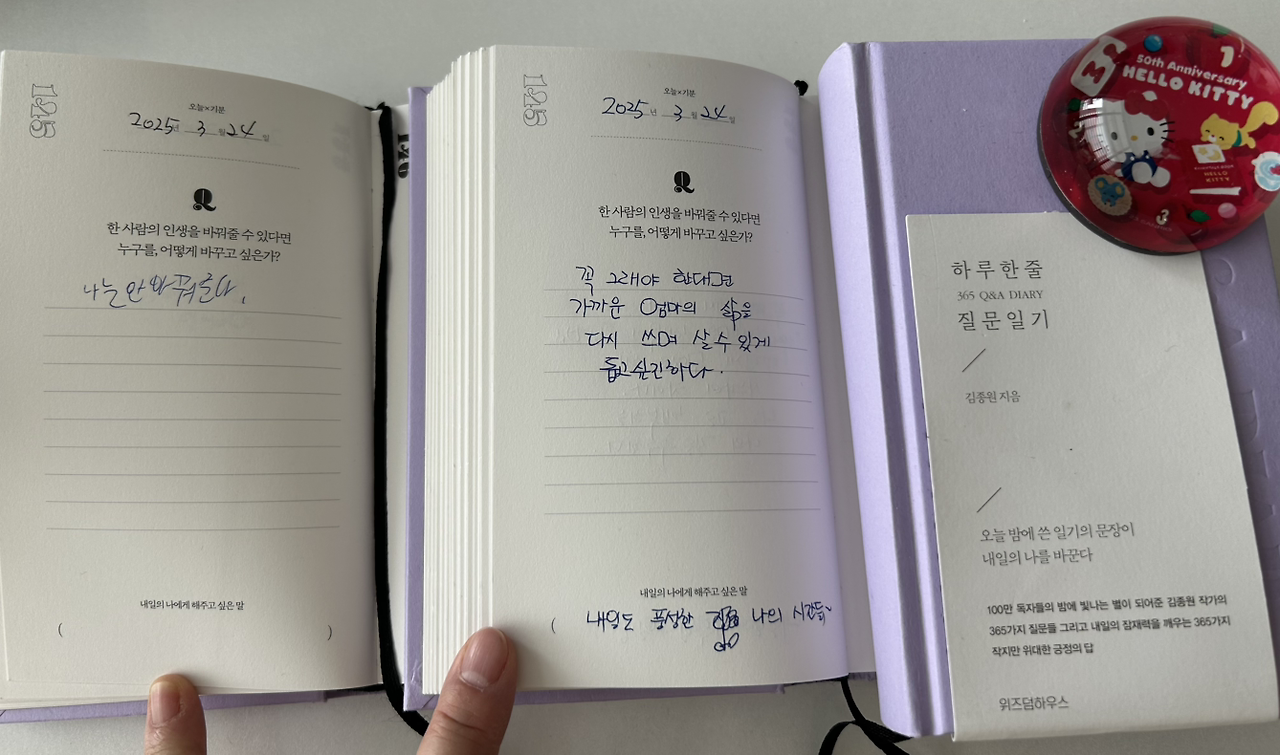 125
오늘×기분
2025년 3월 24일
Q
한 사람의 인생을 바꿔줄 수 있다면
누구를, 어떻게 바꾸고 싶은가?
나는 안 바꿔준다.
내일의 나에게 해주고 싶은 말
(                    )
140
125
오늘×기분
2025년 3월 24일
Q
한 사람의 인생을 바꿔줄 수 있다면
누구를, 어떻게 바꾸고 싶은가?
꼭 그래야 한다면
가까운 엄마의 삶을
다시 쓰며 살 수 있게
돕고 싶긴하다.
내일의 나에게 해주고 싶은 말
( 내일도 풍성한 나의 시간들
50th Anniversary
HELLO KITTY
하루 한 줄
365 Q&A DIARY
질문 일기
김종원 지음
오늘 밤에 쓴 일기의 문장이
내일의 나를 바꾼다
100만 독자들의 밤에 빛나는 별이 되어준 김종원 작가의
365가지 질문들 그리고 내일의 잠재력을 깨우는 365가지
작지만 위대한 긍정의 답
위즈덤하우스